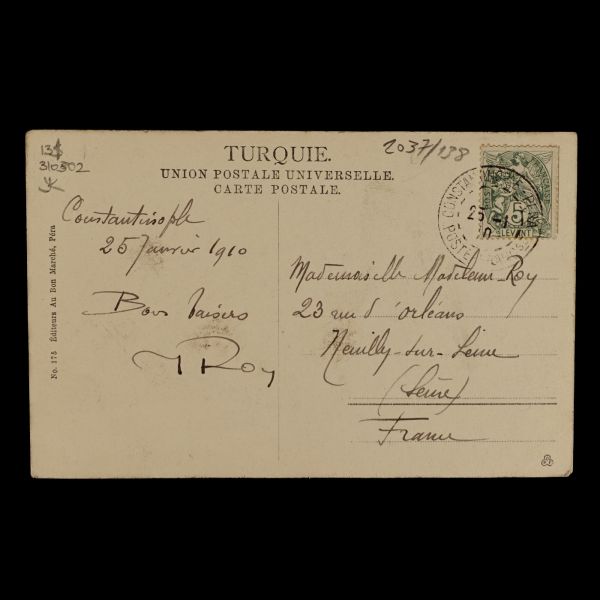 13$
310502
2037/138
TURQUIE.
UNION POSTALE UNIVERSELLE.
CARTE POSTALE.
Constantinople
25 Janvier 1910
Bons baisers
Roy
Mademoiselle Roy
23 rue d'orléans
Neuilly-sur-Seine
(Seine)
France
CONSTANTINOPLE
25
POSTE
5
LEVANT
No. 175 Éditeurs Au Bon Marché, Péra